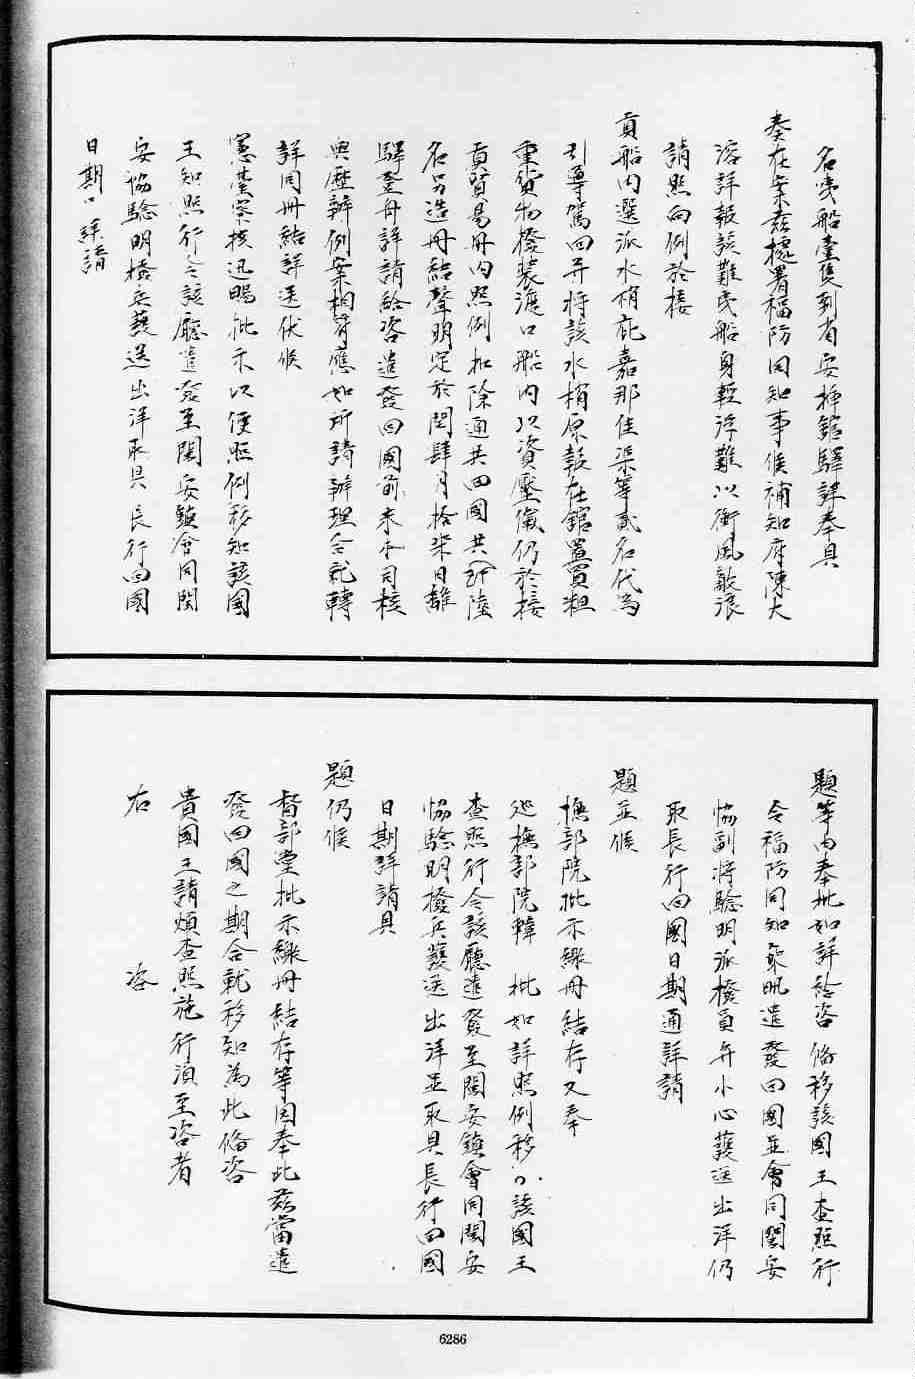 名夷船壹隻到省安插館驛譯奉具
奏在案茲據署福防同知事候補知府陳大
溶詳報該難民船身輕浮難以衝風敵浪
請照向例於接
貢船內選派水梢庇嘉那住渠等貳名代為
引導駕回并將該水梢原報在館置買粗
重貨物撥裝渡口船內以資壓儎仍於接
貢貿易冊內照例扣除通共回國共陸
名另造冊結聲明定於閏肆月拾柒日離
驛登舟詳請給咨遣發回國前來本司核
與歷辦例案相符應如所請辦理合就轉
詳同冊結詳送伏候
憲臺察核迅賜批示以便照例移知該國
王知照行令該廳遣發至閩安鎮會同閩
安協驗明撥兵護送出洋取具長行回國
日期詳請
題等由奉批如詳給咨備移該國王查照行
令福防同知乘帆遣發回國並會同閩安
協副將驗明派撥員弁小心護送出洋仍
取長行回國日期通詳請
題並候
撫部院批示繳冊結存又奉
巡撫部院韓 批如詳照例移知該國王
查照行令該廳遣發至閩安鎮會同閩安
協驗明撥兵護送出洋並取具長行回國
日期詳請具
題仍候
督部堂批示繳冊結存等因奉此茲當遣
發回國之期合就移知為此備咨
貴國王請煩查照施行須至咨者
右 咨
6286